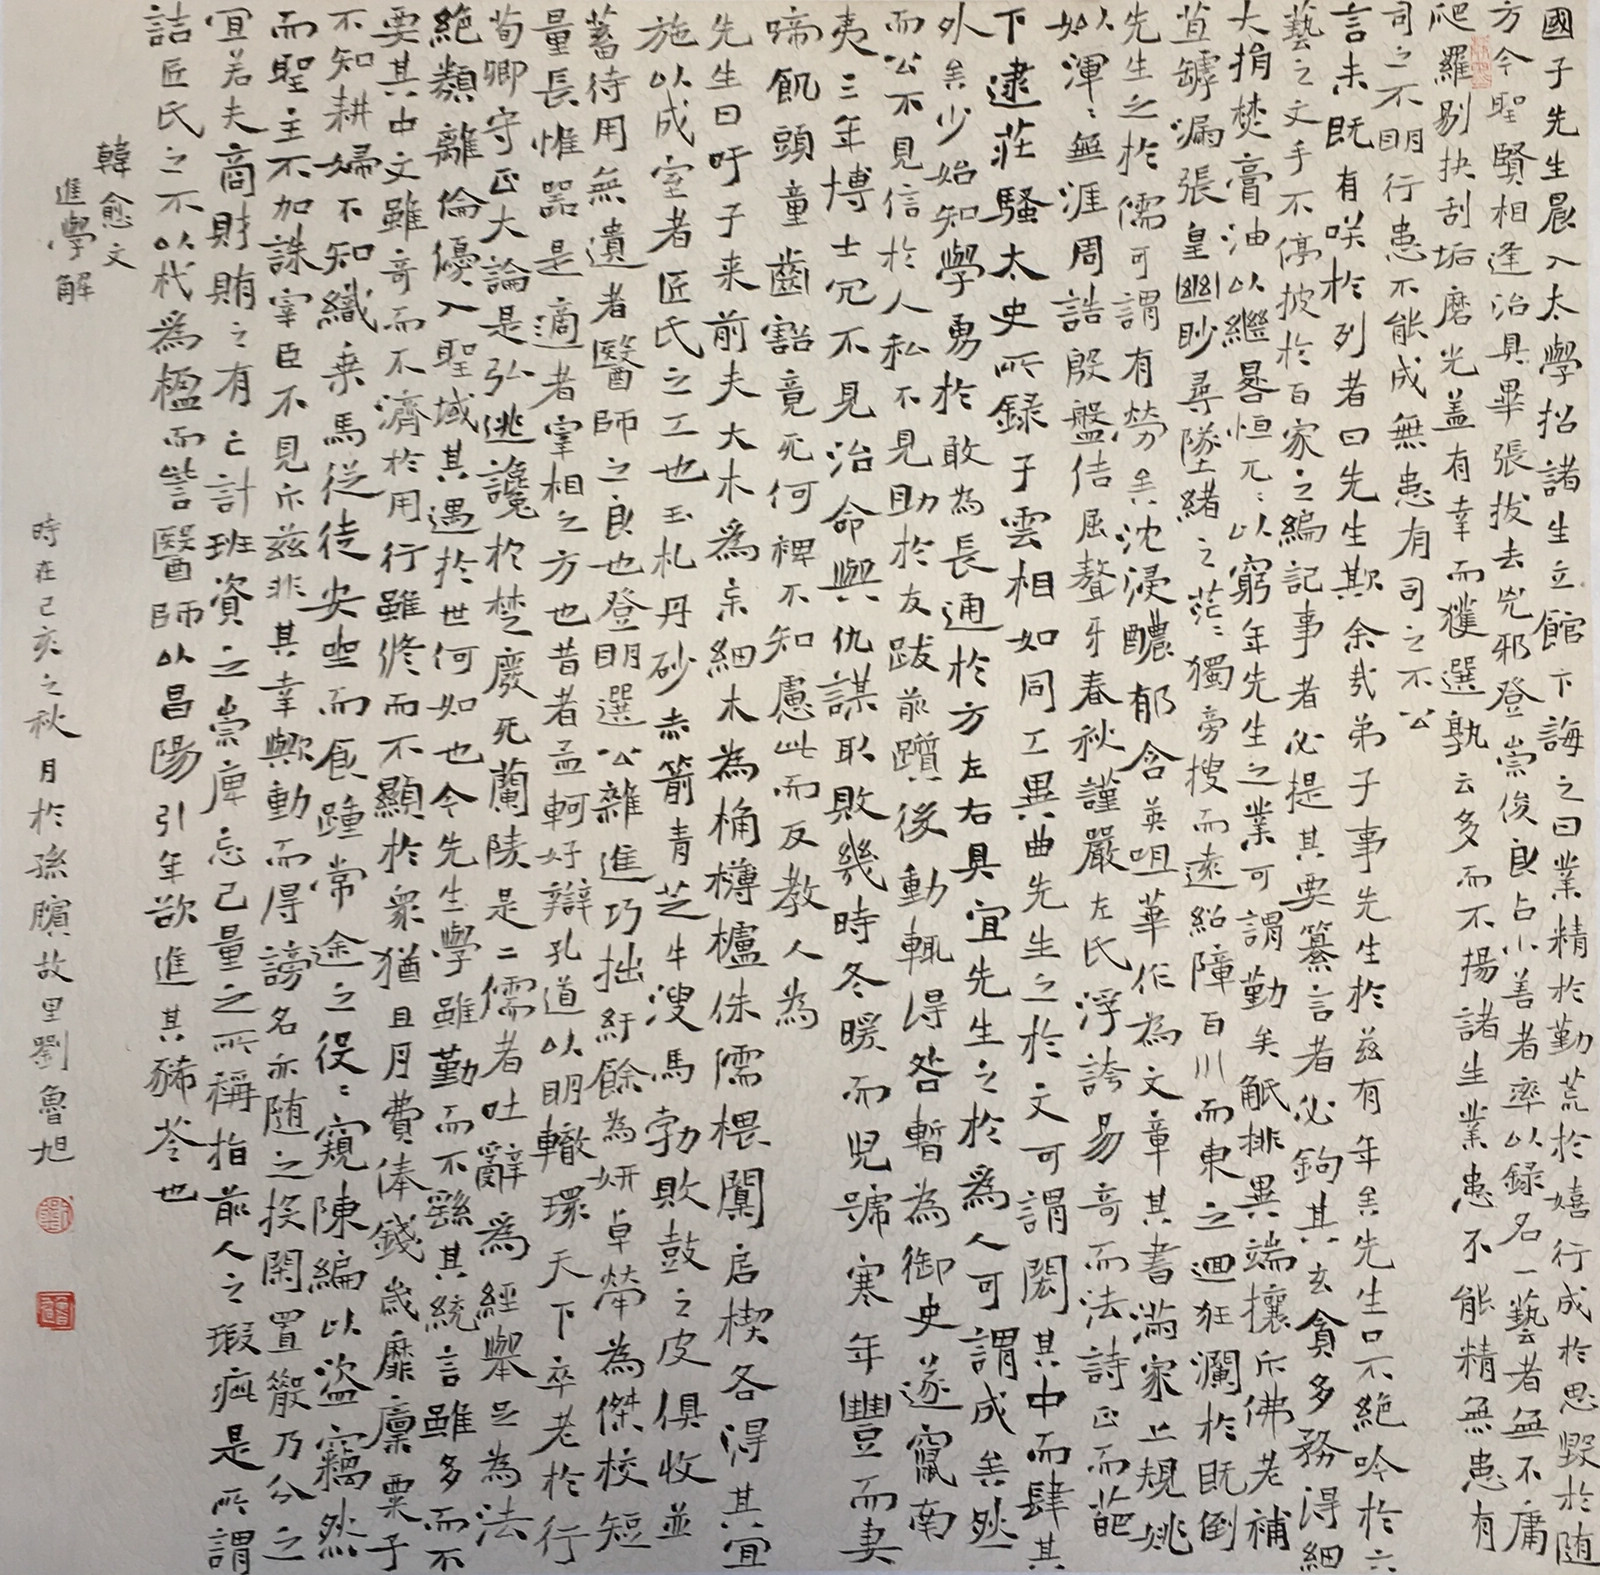 國子先生晨入太學招諸生立館下誨之曰業精於勤荒於嬉行成於思毀於随
方今聖賢相逢治具畢張拔去兇邪登崇俊良占小善者率以録名一藝者無不庸
爬羅剔抉刮垢磨光盖有幸而獲選孰云多而不揚諸生業患不能精無患有
司之不明行患不能成無患有司之不公
言未既有咲於列者曰先生欺余哉弟子事先生於兹有年矣先生口不絶吟於六
藝之文手不停披於百家之編記事者必提其要纂言者必鉤其玄貪多務得細
大捐焚膏油以繼晷恒兀:以窮年先生之業可謂勤矣觝排異端攘斥佛老補
苴罅漏張皇幽眇尋墜緒之茫:獨旁搜而遠紹障百川而東之迴狂瀾於既倒
先生之於儒可謂有勞矣沈浸醲郁含英咀華作為文章其書滿家上規姚
姒渾:無涯周誥殷盤佶屈聱牙春秋謹嚴左氏浮誇易奇而法詩正而葩
下逮莊騷太史所録子雲相如同工異曲先生之於文可謂閎其中而肆其
外矣少始知學勇於敢為長通於方左右具宜先生之於為人可謂成矣然
而公不見信於人私不見助於友跋前躓後動輒得咎暫為御史遂竄南
夷三年博士冗不見治命與仇謀取敗幾時冬暖而兒號寒年豐而妻
啼飢頭童齒豁竟死何裨不知慮此而反教人為
先生曰吁子来前夫大木為杗細木為桷欂櫨侏儒椳闑扂楔各得其宜
施以成室者匠氏之工也玉札丹砂赤箭青芝牛溲馬勃敗鼓之皮俱收並
蓄待用無遺者醫師之良也登明選公雜進巧拙紆餘為妍卓犖為傑校短
量長惟器是適者宰相之方也昔者孟軻好辯孔道以明轍環天下卒老於行
荀卿守正大論是弘逃讒於楚廢死蘭陵是二儒者吐辭為經舉足為法
絶類離倫優入聖域其遇於世何如也今先生學雖勤而不繇其統言雖多而不
要其中文雖奇而不濟於用行雖修而不顯於衆猶且月費俸錢歲靡廩粟子
不知耕婦不知織乗馬従徒安坐而食踵常途之役:窺陳編以盜竊然
而聖主不加誅宰臣不見斥兹非其幸歟動而得謗名亦随之投閑置散乃分之
宜若夫商財賄之有亡計班資之崇庳忘己量之所稱指前人之瑕疵是所謂
詰匠氏之不以杙為楹而訾醫師以昌陽引年欲進其豨苓也
韓愈文
進學解
時在己亥之秋月於孫臏故里劉魯旭